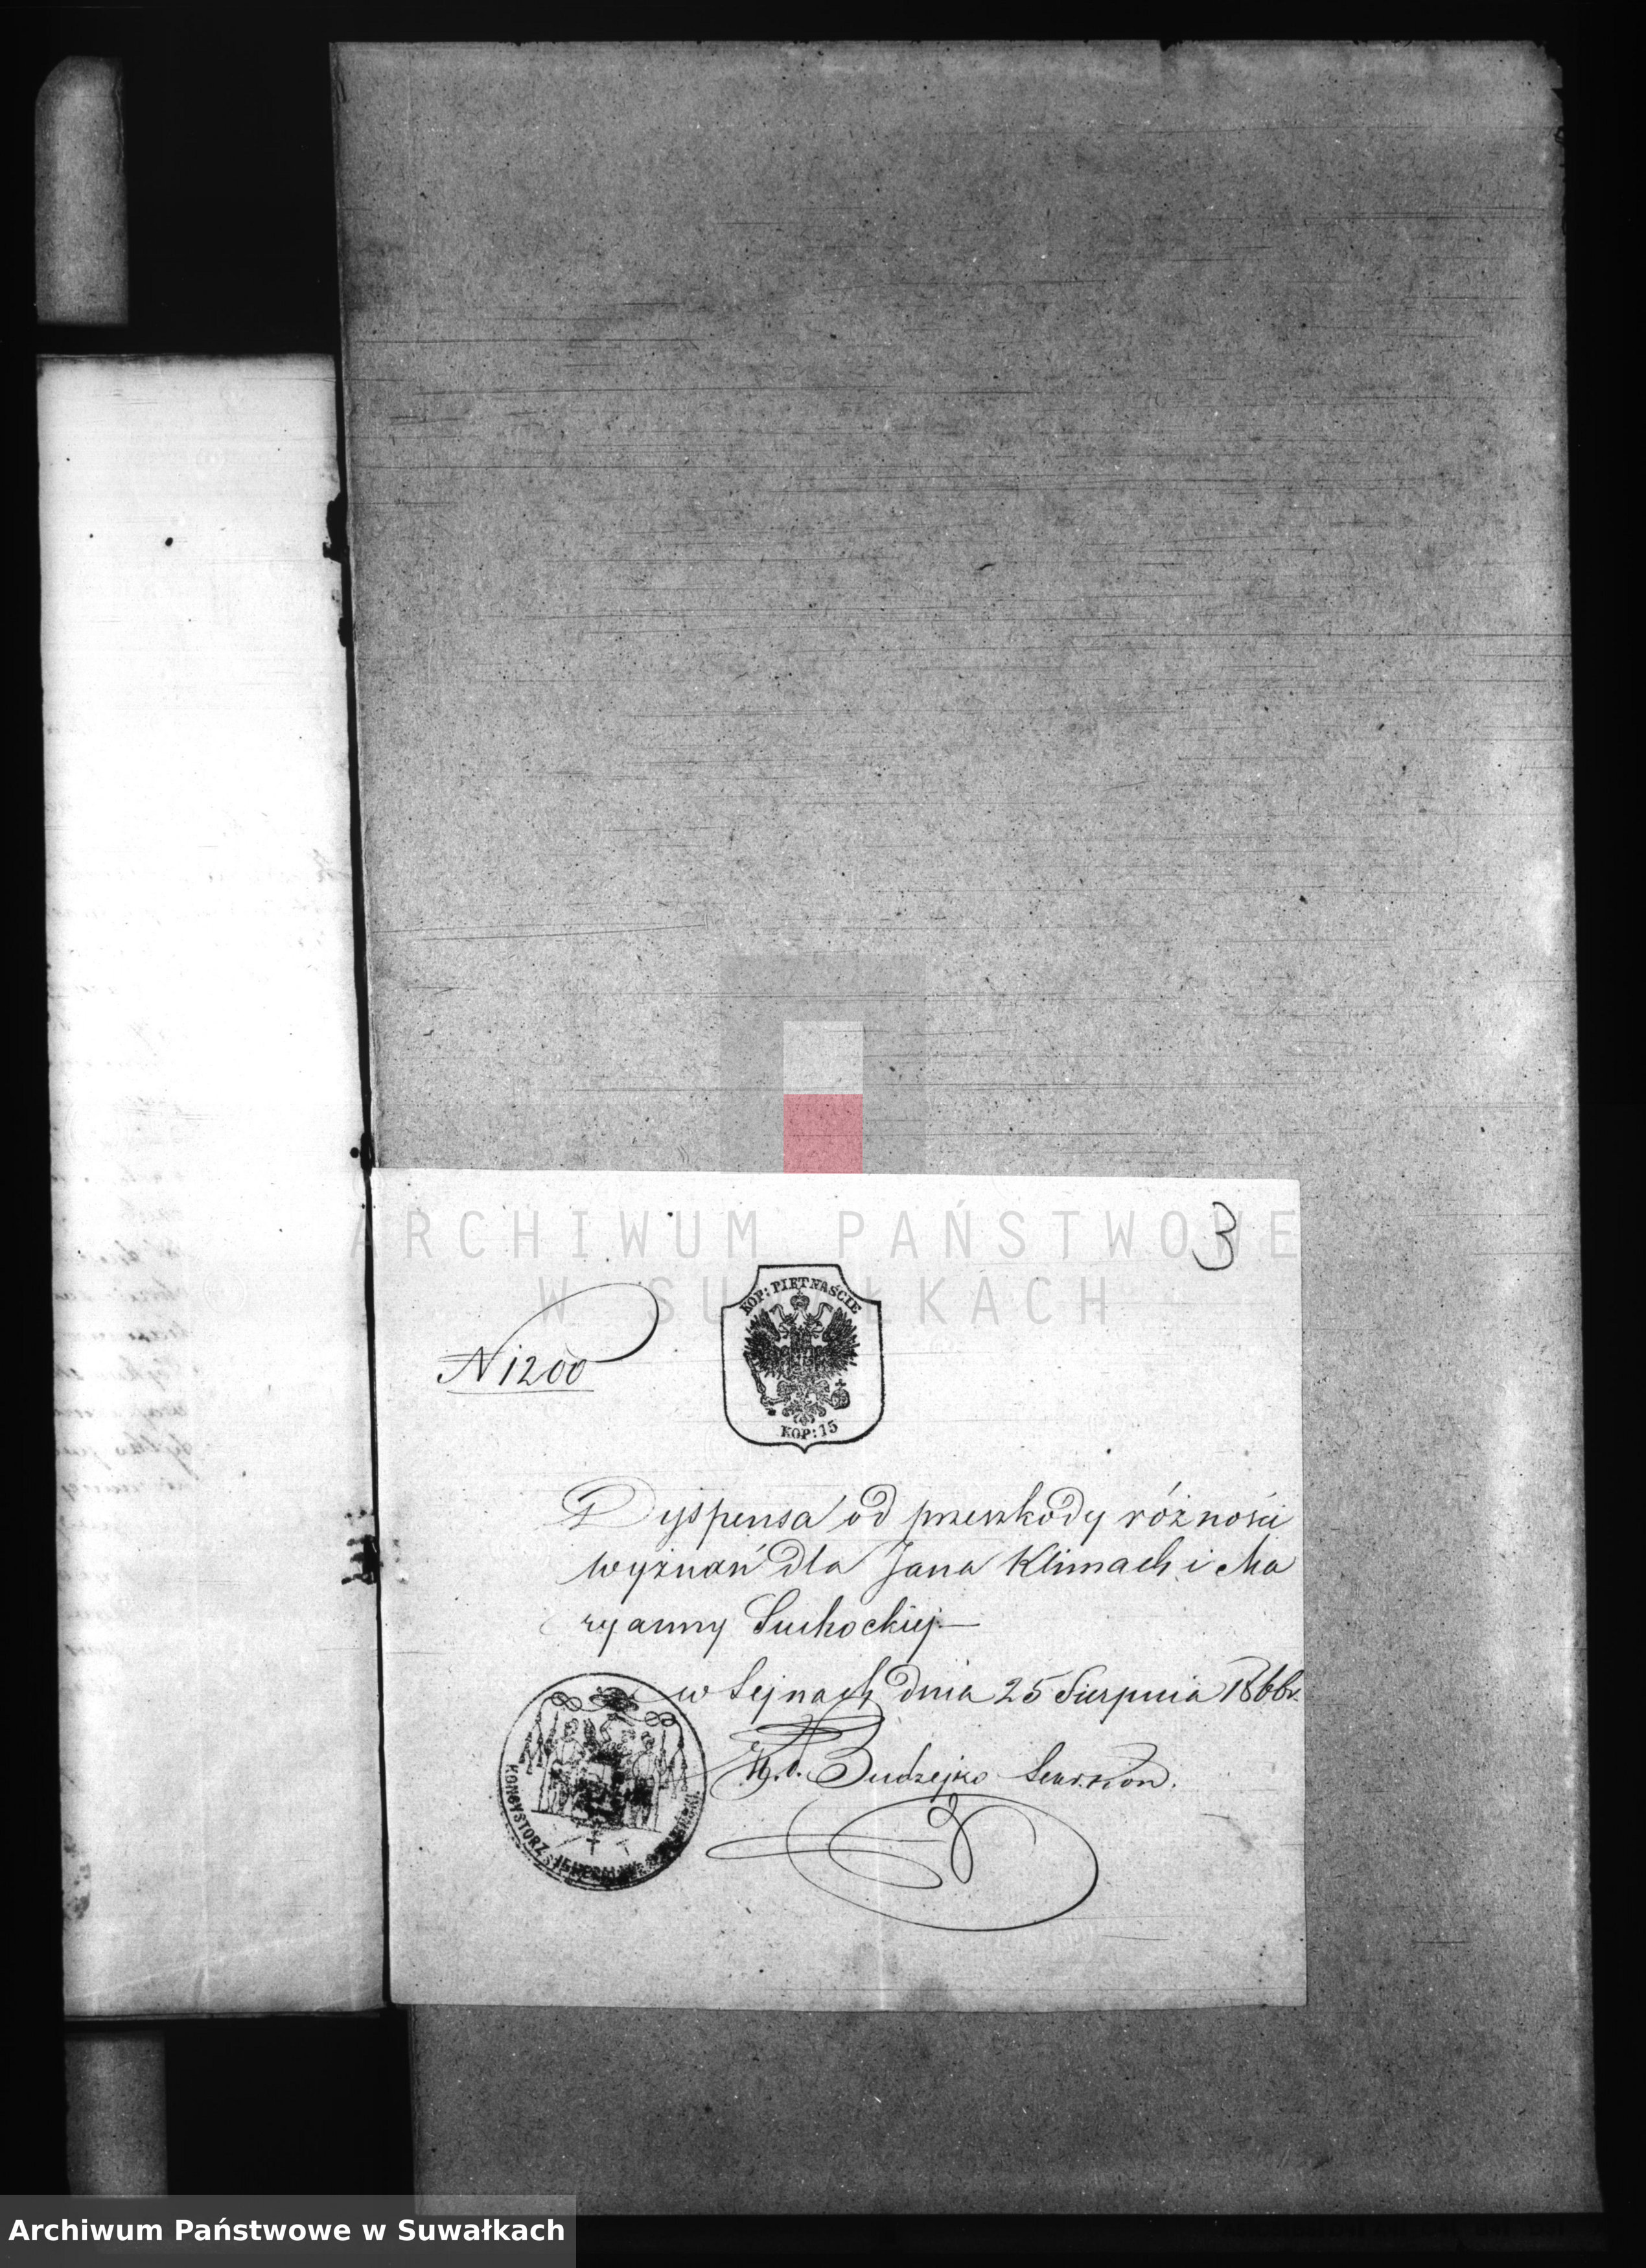 3
ARCHIWUM PAŃSTWOWE
W SUWAŁKACH
KOP: PIĘTNAŚCIE
KOP: 15
N 1200
Dyspensa od przeszkody różności
wyznań dla Jana Klimach i Ma
ryanny Suchockiej
w Sejnach dnia 25 Sierpnia 1866 r.
Budzejko Sekr. Kon.
KONSYSTORZ JENERALNY
Archiwum Państwowe w Suwałkach